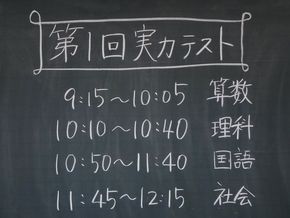 第1回実力テスト
9:15〜10:05 算数
10:10〜10:40 理科
10:50〜11:40 国語
11:45〜12:15 社会